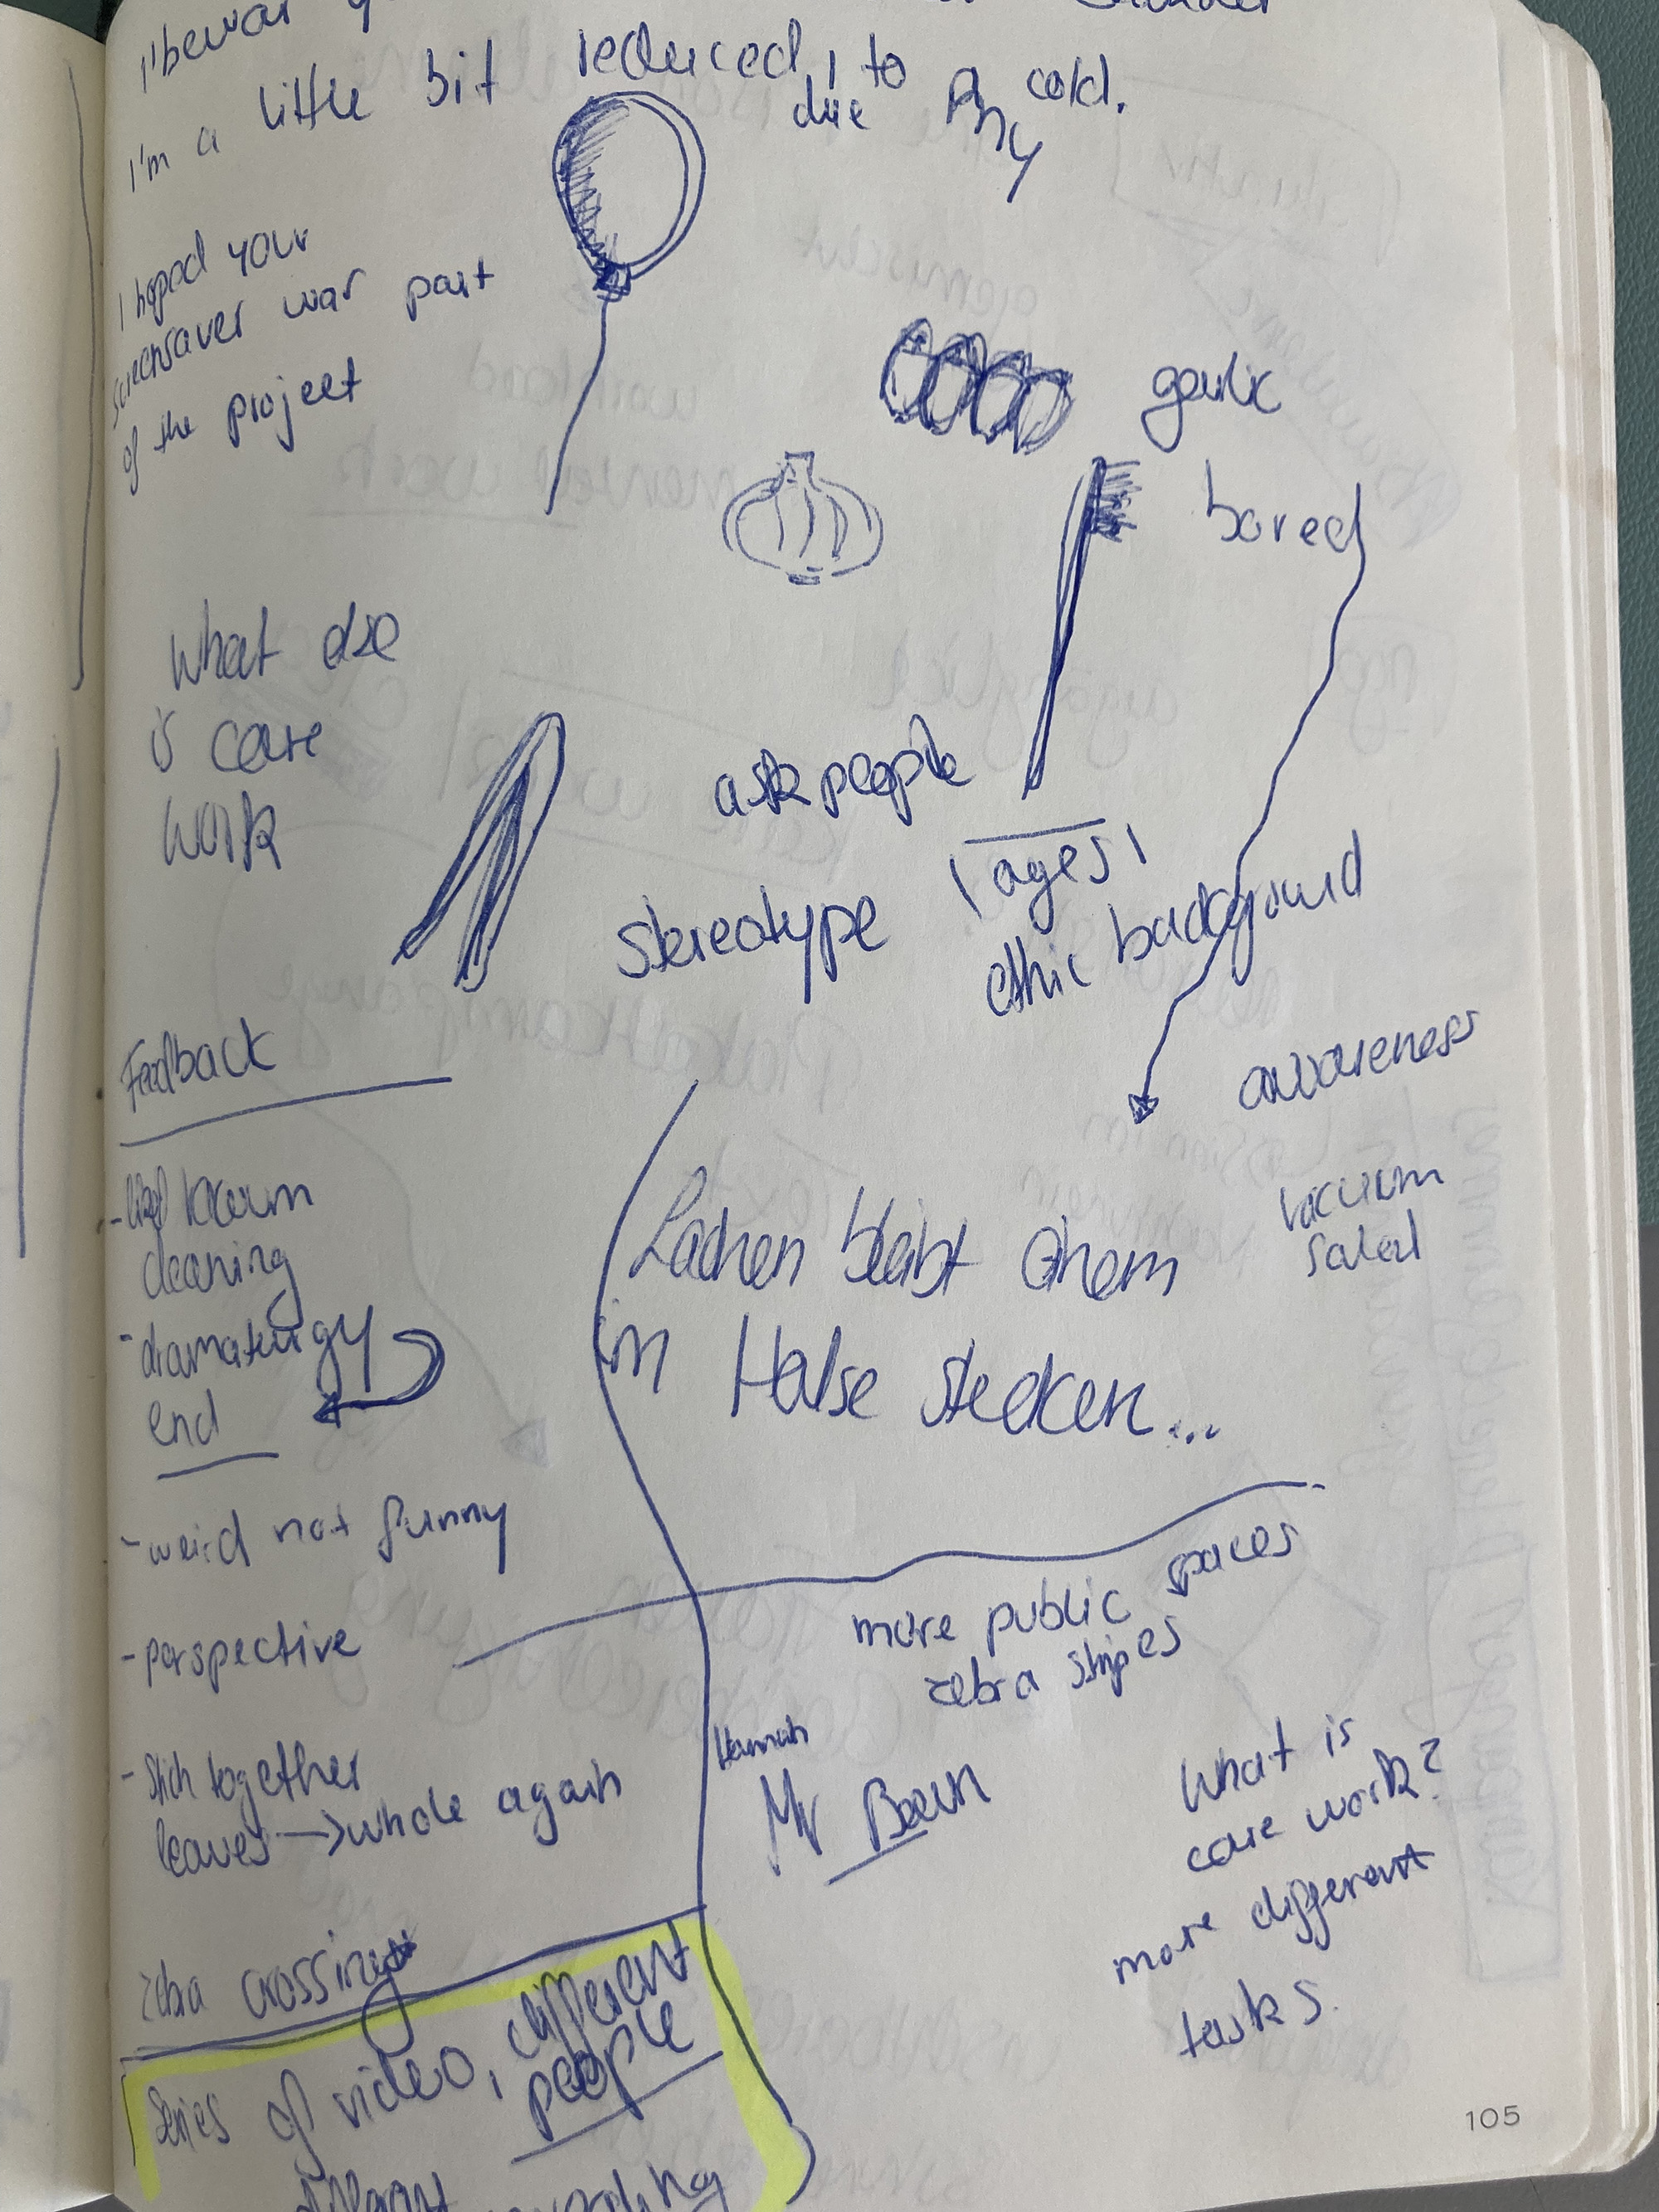 I'm a little bit reduced, due to my cold.
I hoped your
screensaver war part
of the project
garlic
bored
What else
is care
work
ask people
ages
stereotype
ethic background
awareness
vacuum
salad
Feedback
- liked
cleaning
- dramaturgy
end
- weird not funny
- perspective
- stich together
leaves → whole again
zebra crossing
Series of video, different
people
Lachen bleibt einem
im Halse stecken...
more public spaces
zebra stripes
Hannah
Mr Bean
What is
care work?
more different
tasks.
105